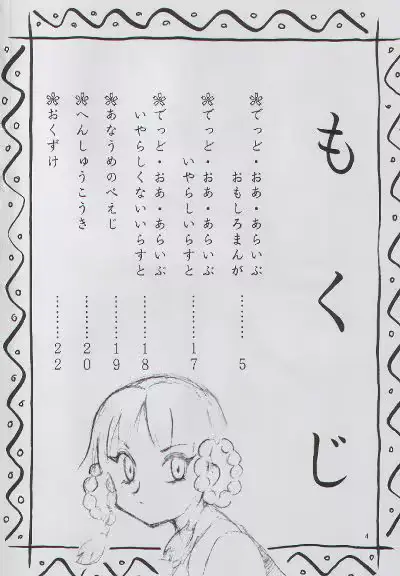 もくじ
❀でっど・おあ・あらいぶ
おもしろまんが…………5
❀でっど・おあ・あらいぶ
いやらしいいらすと…………17
❀でっど・おあ・あらいぶ
いやらしくないいらすと…………18
❀あなうめのぺえじ…………19
❀へんしゅうこうき…………20
❀おくずけ…………22
4